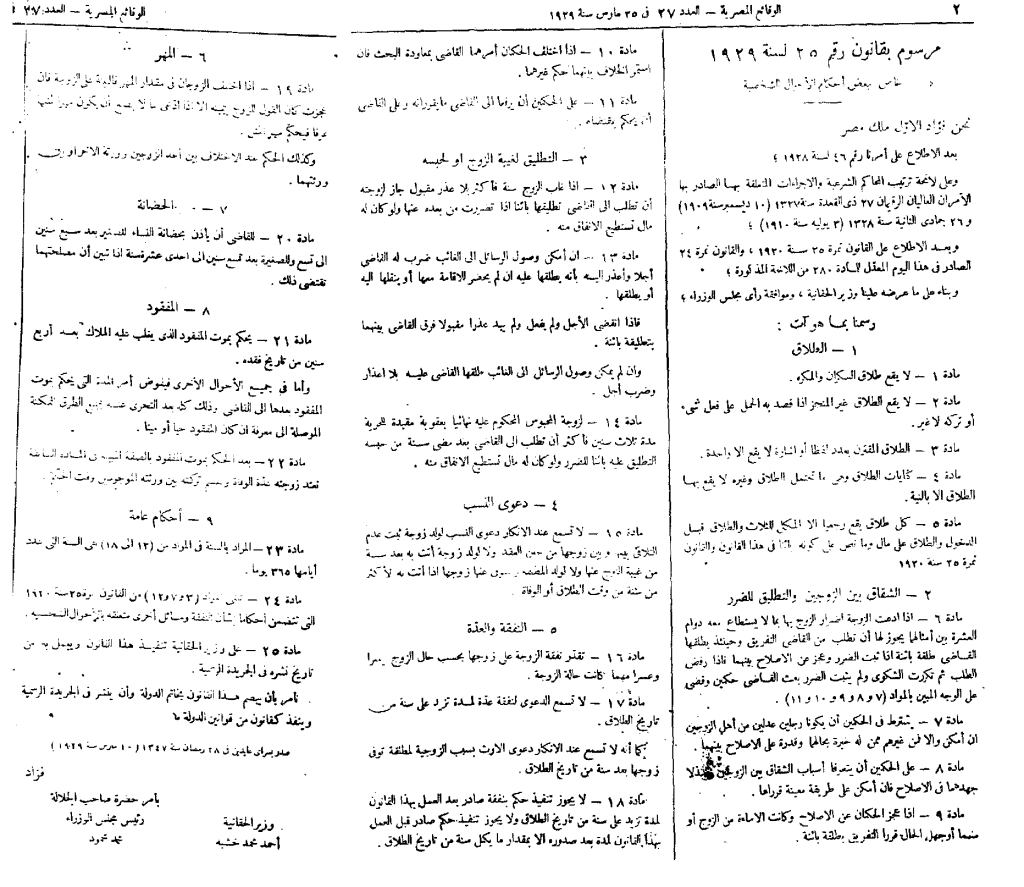 ٢ الوقائع المصرية – العدد ٢٧ فى ٢٥ مارس سنة ١٩٢٩
مرسوم بقانون رقم ٢٥ لسنة ١٩٢٩
خاص ببعض أحكام الأحوال الشخصية
نحن فؤاد الأول ملك مصر
بعد الاطلاع على أمرنا رقم ٤٦ لسنة ١٩٢٨ ؛
وعلى لائحة ترتيب المحاكم الشرعية والاجراءات المتعلقة بهــا الصادر بها
الأمران العاليان الرقيمان ٢٧ ذى القعدة سنة ١٣٢٧ (١٠ ديسمبر سنة ١٩٠٩)
و ٢٦ جمادى الثانية سنة ١٣٢٨ (٣ يوليه سنة ١٩١٠) ؛
وبعــد الاطلاع على القانون نمرة ٢٥ سنة ١٩٢٠ ، والقانون نمرة ٢٤
الصادر فى هذا اليوم المعدّل للــادة ٢٨٠ من اللائحة المذكورة ؛
وبناء على ما عرضه علينا وزير الحقانية ، وموافقة رأى مجلس الوزراء ؛
رسمنا بمـا هو آت :
١ – الطلاق
مادة ١ – لا يقع طلاق السكران والمكره .
مادة ٢ – لا يقع الطلاق غير المنجز اذا قصد به الحمل على فعل شىء
أو تركه لا غير .
مادة ٣ – الطلاق المقترن بعدد لفظا أو اشارة لا يقع الا واحدة .
مادة ٤ – كنايات الطلاق وهى ما تحتمل الطلاق وغيره لا يقع بهــا
الطلاق الا بالنية .
مادة ٥ – كل طلاق يقع رجعيا الا المكمل للثلاث والطلاق قبــل
الدخول والطلاق على مال وما نص على كونه بائنا فى هذا القانون والقانون
نمرة ٢٥ سنة ١٩٢٠
٢ – الشقاق بين الزوجين والتطليق للضرر
مادة ٦ – اذا ادعت الزوجة اضرار الزوج بها بما لا يستطاع معه دوام
العشرة بين أمثالهما يجوز لها أن تطلب من القاضى التفريق وحينئذ يطلقها
القــاضى طلقة بائنة اذا ثبت الضرر وعجز عن الاصلاح بينهما فاذا رفض
الطلب ثم تكررت الشكوى ولم يثبت الضرر بعث القــاضى حكمين وقضى
على الوجه المبين بالمواد (٧ و ٨ و ٩ و ١٠ و ١١) .
مادة ٧ – يشترط فى الحكمين أن يكونا رجلين عدلين من أهل الزوجين
ان أمكن والا فمن غيرهم ممن له خبرة بحالهما وقدرة على الاصلاح بينهما .
مادة ٨ – على الحكمين أن يتعرفا أسباب الشقاق بين الزوجين ويبذلا
جهدهما فى الاصلاح فان أمكن على طريقة معينة قرراها .
مادة ٩ – اذا عجز الحكمان عن الاصلاح وكانت الاساءة من الزوج أو
منهما أو جهل الحال قررا التفريق بطلقة بائنة .
مادة ١٠ – اذا اختلف الحكمان أمرهما القاضى بمعاودة البحث فان
استمر الخلاف بينهما حكم غيرهما .
مادة ١١ – على الحكمين أن يرفعا الى القاضى ما يقررانه وعلى القاضى
أن يحكم بمقتضاه .
٣ – التطليق لغيبة الزوج او لحبسه
مادة ١٢ – اذا غاب الزوج سنة فأكثر بلا عذر مقبول جاز لزوجته
أن تطلب الى القاضى تطليقها بائنا اذا تضررت من بعده عنها ولو كان له
مال تستطيع الانفاق منه .
مادة ١٣ – ان أمكن وصول الرسائل الى الغائب ضرب له القاضى
أجلا وأعذر اليــه بأنه يطلقها عليه ان لم يحضر للاقامة معها أو ينقلها اليه
أو يطلقها .
فاذا انقضى الأجل ولم يفعل ولم يبد عذرا مقبولا فرق القاضى بينهما
بتطليقة بائنة .
وان لم يمكن وصول الرسائل الى الغائب طلقها القاضى عليــه بلا اعذار
وضرب أجل .
مادة ١٤ – لزوجة المحبوس المحكوم عليه نهائيا بعقوبة مقيدة للحرية
مدة ثلاث سنين فأكثر أن تطلب الى القاضى بعد مضى ســنة من حبسه
التطليق عليه بائنا للضرر ولو كان له مال تستطيع الانفاق منه .
٤ – دعوى النسب
مادة ١٥ – لا تسمع عند الانكار دعوى النسب لولد زوجة ثبت عدم
التلاقى بينها وبين زوجها من حين العقد ولا لولد زوجة أتت به بعد ســنة
من غيبة الزوج عنها ولا لولد المطلقة والمتوفى عنها زوجها اذا أتت به لأكثر
من سنة من وقت الطلاق أو الوفاة .
٥ – النفقة والعدّة
مادة ١٦ – تقدّر نفقة الزوجة على زوجها بحسب حال الزوج يسرا
وعسرا مهما كانت حالة الزوجة .
مادة ١٧ – لا تسمع الدعوى لنفقة عدّة لمــدة تزيد على سنة من
تاريخ الطلاق .
كما أنه لا تسمع عند الانكار دعوى الارث بسبب الزوجية لمطلقة توفى
زوجها بعد سنة من تاريخ الطلاق .
مادة ١٨ – لا يجوز تنفيذ حكم بنفقة صادر بعد العمل بهذا القانون
لمدة تزيد على سنة من تاريخ الطلاق ولا يجوز تنفيذ حكم صادر قبل العمل
بهذا القانون لمدة بعد صدوره الا بمقدار ما يكمل سنة من تاريخ الطلاق .
الوقائع المصرية – العدد ٢٧
٦ – المهر
مادة ١٩ – اذا اختلف الزوجان فى مقدار المهر فالبينة على الزوجة فان
عجزت كان القول للزوج بيمينه الا اذا ادّعى ما لا يصح أن يكون مهرا لمثلها
عرفا فيحكم بمهر المثل .
وكذلك الحكم عند الاختلاف بين أحد الزوجين وورثة الآخر أو بين
ورثتهما .
٧ – الحضانة
مادة ٢٠ – للقاضى أن يأذن بحضانة النساء للصغير بعد ســبع سنين
الى تسع وللصغيرة بعد تسع سنين الى احدى عشرة سنة اذا تبين أن مصلحتهما
تقتضى ذلك .
٨ – المفقود
مادة ٢١ – يحكم بموت المفقود الذى يغلب عليه الهلاك بعــد أربع
سنين من تاريخ فقده .
وأما فى جميــع الأحوال الأخرى فيفوض أمر المدة التى يحكم بموت
المفقود بعدها الى القاضى وذلك كله بعد التحرى عنــه بجميع الطرق الممكنة
الموصلة الى معرفة ان كان المفقود حيا أو ميتا .
مادة ٢٢ – بعد الحكم بموت المفقود بالصفة المبينة فى المــادة السابقة
تعتد زوجته عدّة الوفاة وتقسم تركته بين ورثته الموجودين وقت الحكم .
٩ – أحكام عامة
مادة ٢٣ – المراد بالسنة فى المواد من (١٢ الى ١٨) هى السنة التى عدد
أيامها ٣٦٥ يوما .
مادة ٢٤ – تلغى المواد (٣ و ٧ و ١٢) من القانون نمرة ٢٥ سنة ١٩٢٠
التى تتضمن أحكاما بشأن النفقة ومسائل أخرى متعلقة بالأحوال الشخصية .
مادة ٢٥ – على وزير الحقانية تنفيــذ هذا القانون ويعمل به من
تاريخ نشره فى الجريدة الرسمية .
نأمر بأن يبصم هــذا القانون بخاتم الدولة وأن ينشر فى الجريدة الرسمية
وينفذ كقانون من قوانين الدولة ما
صدر بسراى عابدين فى ٢٨ رمضان سنة ١٣٤٧ (١٠ مارس سنة ١٩٢٩)
فؤاد
بأمر حضرة صاحب الجلالة
رئيس مجلس الوزراء
محمد محمود
وزير الحقانية
أحمد محمد خشبه